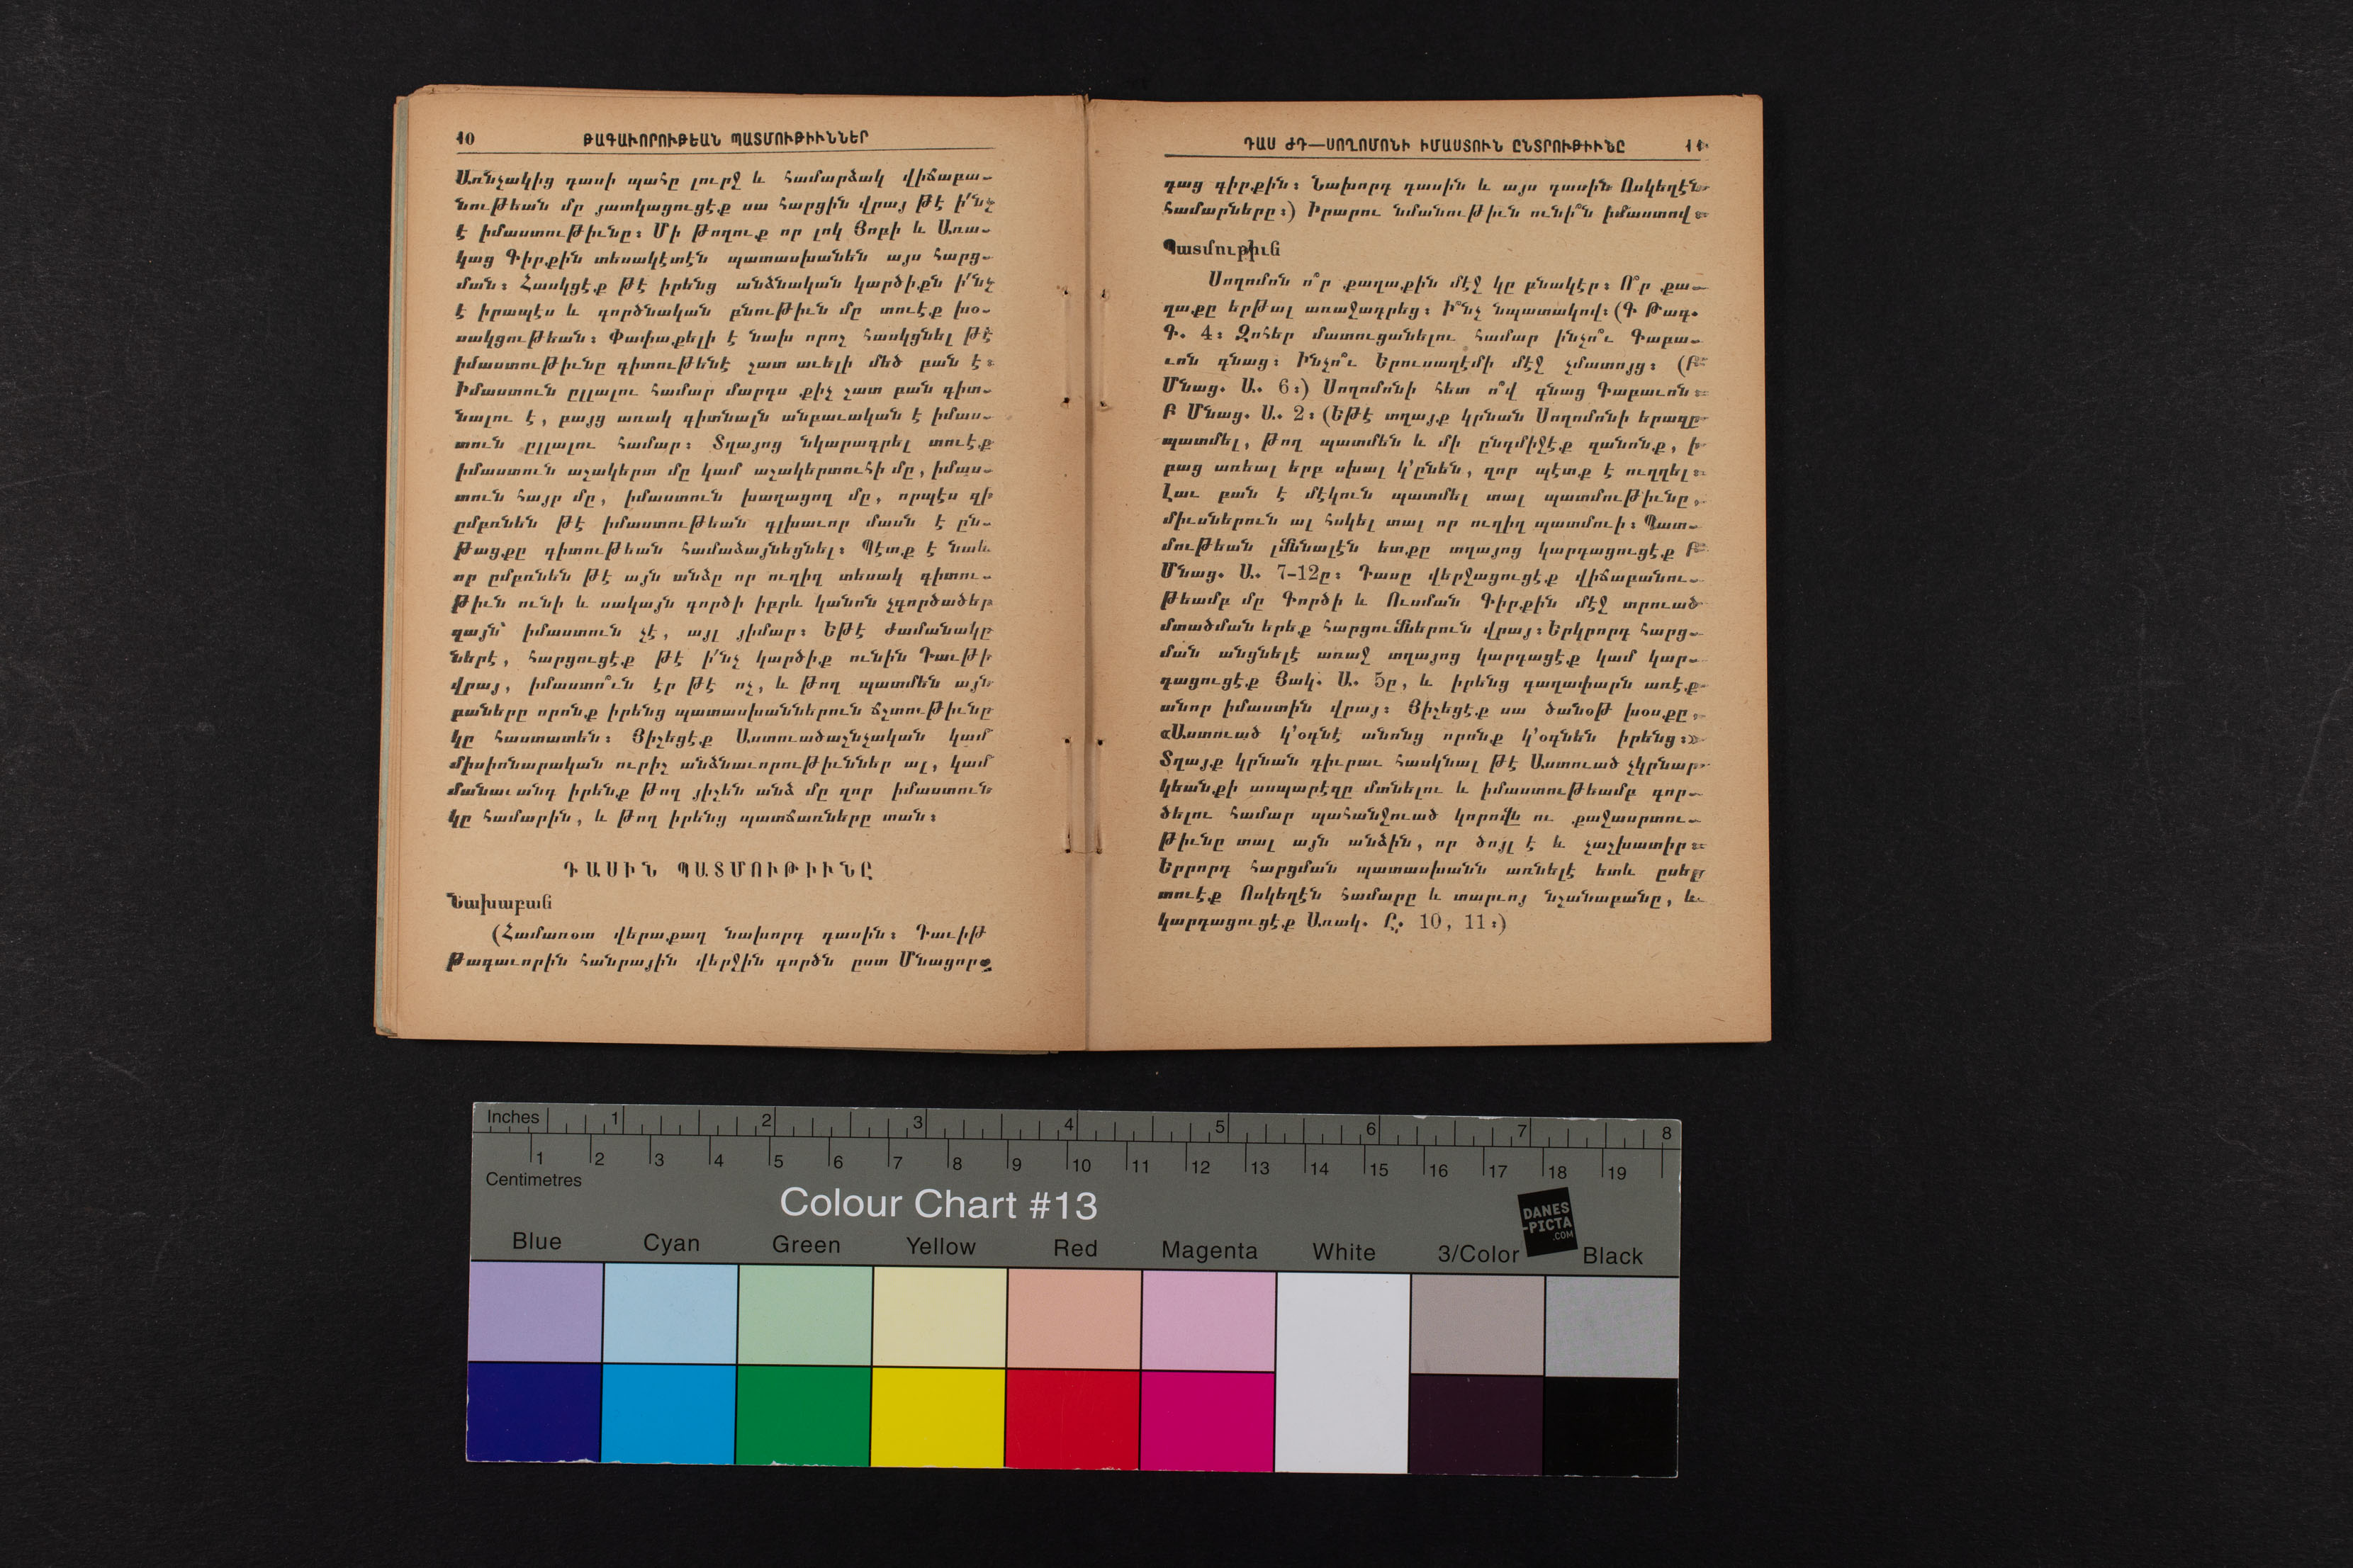 10 ԹԱԳԱՒՈՐՈՒԹԵԱՆ ՊԱՏՄՈՒԹԻՒՆՆԵՐ
Առնչակից դասի պահը լուրջ և համարձակ վիճաբա-
նութեան մը յատկացուցէք սա հարցին վրայ թէ ի՛նչ
է իմաստութիւնը։ Մի թողուք որ լոկ Յոբի և Առա-
կաց Գիրքին տեսակէտէն պատասխանեն այս հարց-
ման։ Հասկցէք թէ իրենց անձնական կարծիքն ի՛նչ
է իրապէս և գործնական բնութիւն մը տուէք խօ-
սակցութեան։ Փափաքելի է նախ որոշ հասկցնել թէ
իմաստութիւնը գիտութենէ շատ աւելի մեծ բան է։
Իմաստուն ըլլալու համար մարդս քիչ շատ բան գիտ-
նալու է, բայց առակ գիտնալն անբաւական է իմաս-
տուն ըլլալու համար։ Տղայոց նկարագրել տուէք
իմաստուն աշակերտ մը կամ աշակերտուհի մը, իմաս-
տուն հայր մը, իմաստուն խաղացող մը, որպէս զի
ըմբռնեն թէ իմաստութեան գլխաւոր մասն է ըն-
թացքը գիտութեան համաձայնեցնել։ Պէտք է նաև
որ ըմբռնեն թէ այն անձը որ ուղիղ տեսակ գիտու-
թիւն ունի և սակայն գործի իբրև կանոն չգործածեր
զայն՝ իմաստուն չէ, այլ յիմար։ Եթէ ժամանակը
ներէ, հարցուցէք թէ ի՛նչ կարծիք ունին Դաւթի
վրայ, իմաստո՞ւն էր թէ ոչ, և թող պատմեն այն
բաները որոնք իրենց պատասխաններուն ճշտութիւնը
կը հաստատեն։ Յիշեցէք Աստուածաշնչական կամ
միսիոնարական ուրիշ անձնաւորութիւններ ալ, կամ
մանաւանդ իրենք թող յիշեն անձ մը զոր իմաստուն
կը համարին, և թող իրենց պատճառները տան։
ԴԱՍԻՆ ՊԱՏՄՈՒԹԻՒՆԸ
Նախաբան
(Համառօտ վերաքաղ նախորդ դասին։ Դաւիթ
Թագաւորին հանրային վերջին գործն ըստ Մնացորդ-
ԴԱՍ ԺԴ—ՍՈՂՈՄՈՆԻ ԻՄԱՍՏՈՒՆ ԸՆՏՐՈՒԹԻՒՆԸ 11
դաց գիրքին։ Նախորդ դասին և այս դասին Ոսկեղէն
համարները։) Իրարու նմանութիւն ունի՞ն իմաստով։
Պատմութիւն
Սողոմոն ո՞ր քաղաքին մէջ կը բնակէր։ Ո՞ր քա-
ղաքը երթալ առաջադրեց։ Ի՞նչ նպատակով։ (Գ Թագ.
Գ. 4։ Զոհեր մատուցանելու համար ինչո՞ւ Գաբա-
ւոն գնաց։ Ինչո՞ւ Երուսաղէմի մէջ չմատոյց։ (Բ
Մնաց. Ա. 6։) Սողոմոնի հետ ո՞վ գնաց Գաբաւոն։
Բ Մնաց. Ա. 2։ (Եթէ տղայք կրնան Սողոմոնի երազը
պատմել, թող պատմեն և մի ընդմիջէք զանոնք, ի
բաց առեալ երբ սխալ կ՚ընեն, զոր պէտք է ուղղել։
Լաւ բան է մէկուն պատմել տալ պատմութիւնը,
միւսներուն ալ հսկել տալ որ ուղիղ պատմուի։ Պատ-
մութեան լմննալէն ետքը տղայոց կարդացուցէք Բ
Մնաց. Ա. 7-12ը։ Դասը վերջացուցէք վիճաբանու-
թեամբ մը Գործի և Ուսման Գիրքին մէջ տրուած
մտածման երեք հարցումներուն վրայ։ Երկրորդ հարց-
ման անցնելէ առաջ տղայոց կարդացէք կամ կար-
դացուցէք Յակ. Ա. 5ը, և իրենց գաղափարն առէք
անոր իմաստին վրայ։ Յիշեցէք սա ծանօթ խօսքը,
«Աստուած կ՚օգնէ անոնց որոնք կ՚օգնեն իրենց։»
Տղայք կրնան դիւրաւ հասկնալ թէ Աստուած չկրնար
կեանքի ասպարէզը մտնելու և իմաստութեամբ գոր-
ծելու համար պահանջուած կորովն ու քաջասրտու-
թիւնը տալ այն անձին, որ ծոյլ է և չաշխատիր։
Երրորդ հարցման պատասխանն առնելէ ետև ըսել
տուէք Ոսկեղէն համարը և տարւոյ նշանաբանը, և
կարդացուցէք Առակ. Ը. 10, 11։)
Inches 1 2 3 4 5 6 7 8
1 2 3 4 5 6 7 8 9 10 11 12 13 14 15 16 17 18 19
Centimetres
Colour Chart #13
DANES
-PICTA
.COM
Blue Cyan Green Yellow Red Magenta White 3/Color Black